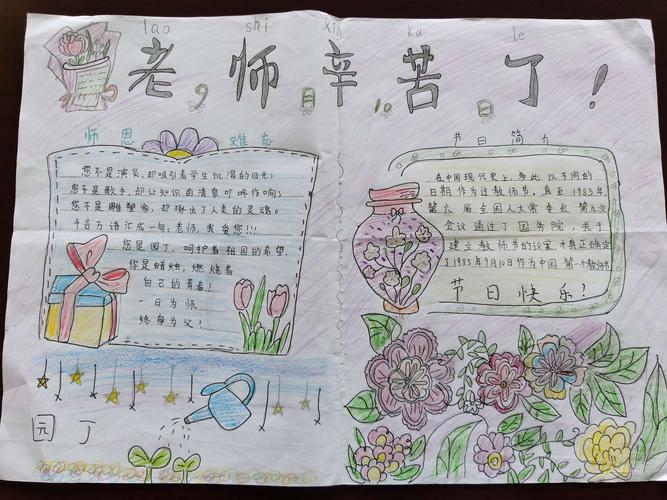 lao shi xin ku le
老师辛苦了!
9月10日
师恩难忘
您不是演员,却吸引着学生饥渴的目光;
您不是歌手,却让知识的清泉叮咚作响;
您不是雕塑家,却琢出了人类的灵魂。
千言万语汇成一句:老师,我爱您!!!
您是园丁,呵护着祖国的希望,
你是蜡烛,燃烧着
自己的青春!
一日为师,
终身为父!
园丁
节日简介
在中国现代史上,多此以不同的
日期作为过教师节,直至1985年,
第六届全国人大常委会第九次
会议通过了国务院,关于
建立教师节的议案,才真正确定
了1985年9月10日作为中国第一个教师节
节日快乐!